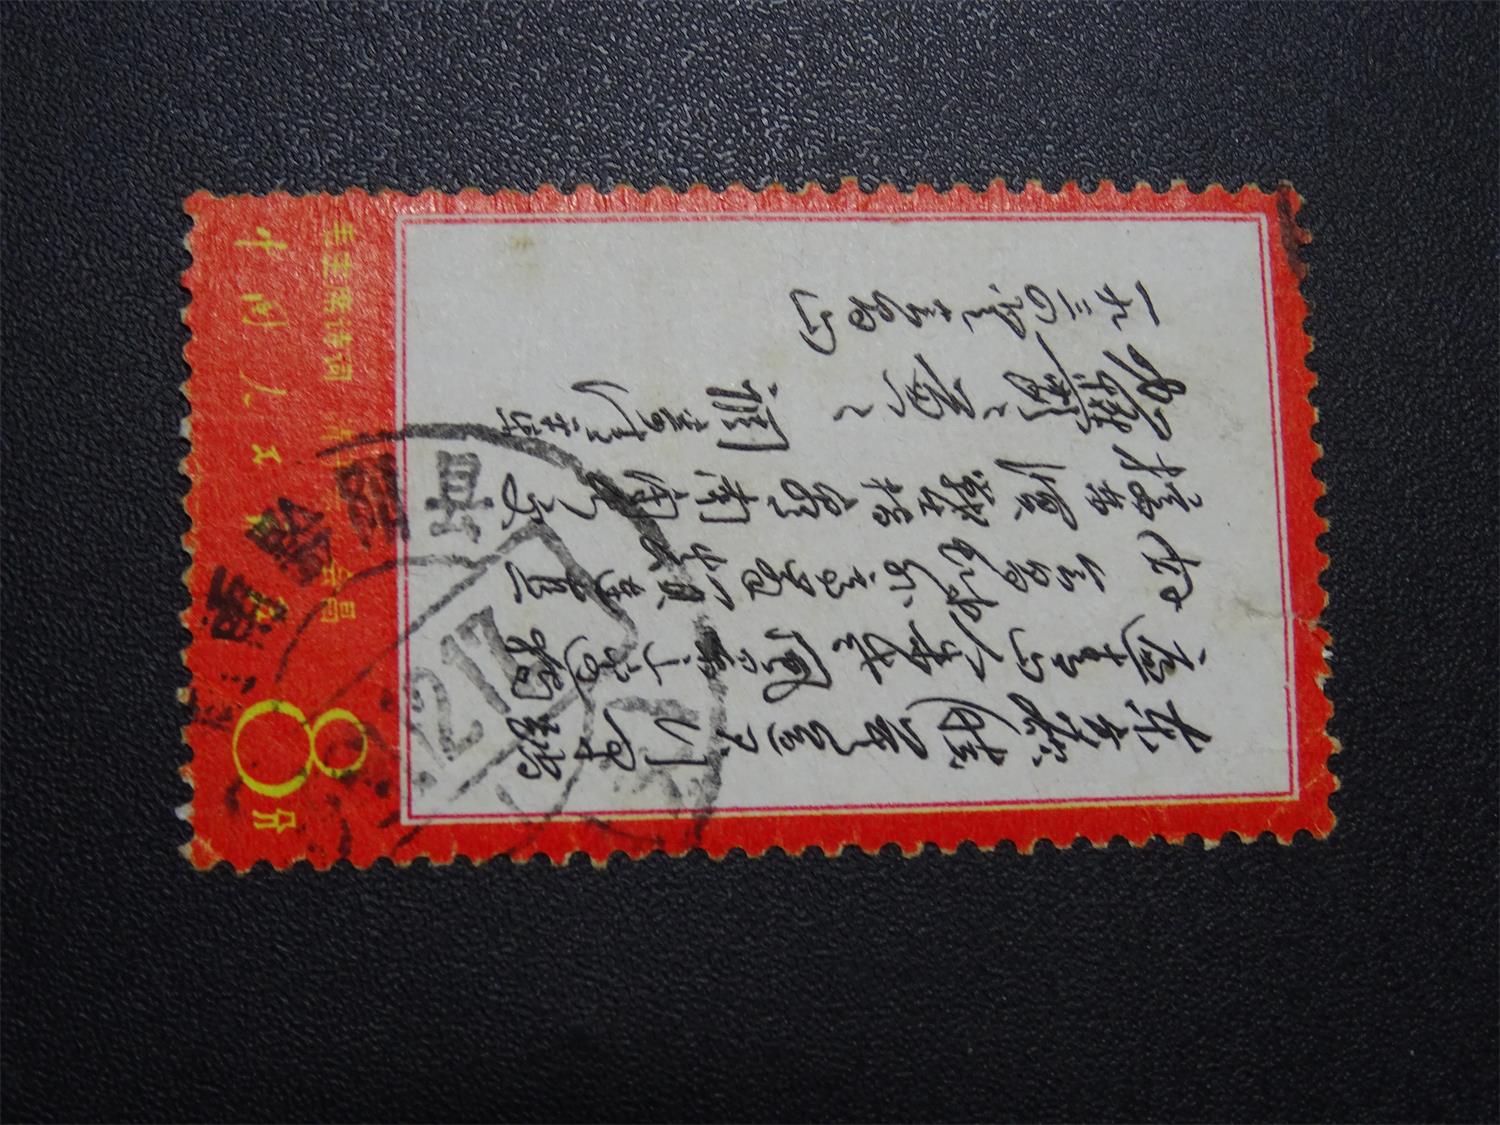 东方欲晓莫道君行早踏
遍青山人未老风景这边独
好会昌城外高峰颠连直
接东溟战士指看南粤更
加郁郁葱葱
调寄清平乐
一九三四年登会昌山
毛主席诗词 清平乐 会昌
中国人民邮政
8分